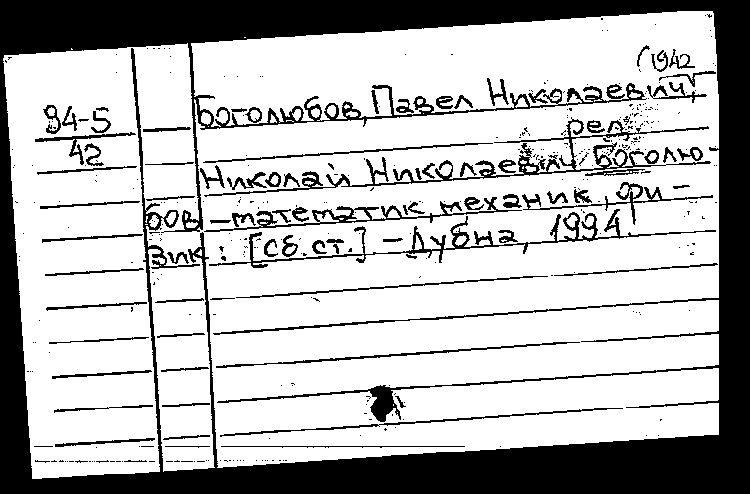 (1942
94-5
42
Боголюбов, Павел Николаевич,
ред.
Николай Николаевич Боголю-
бов - математик, механик, фи-
зик : [сб. ст.] - Дубна, 1994.